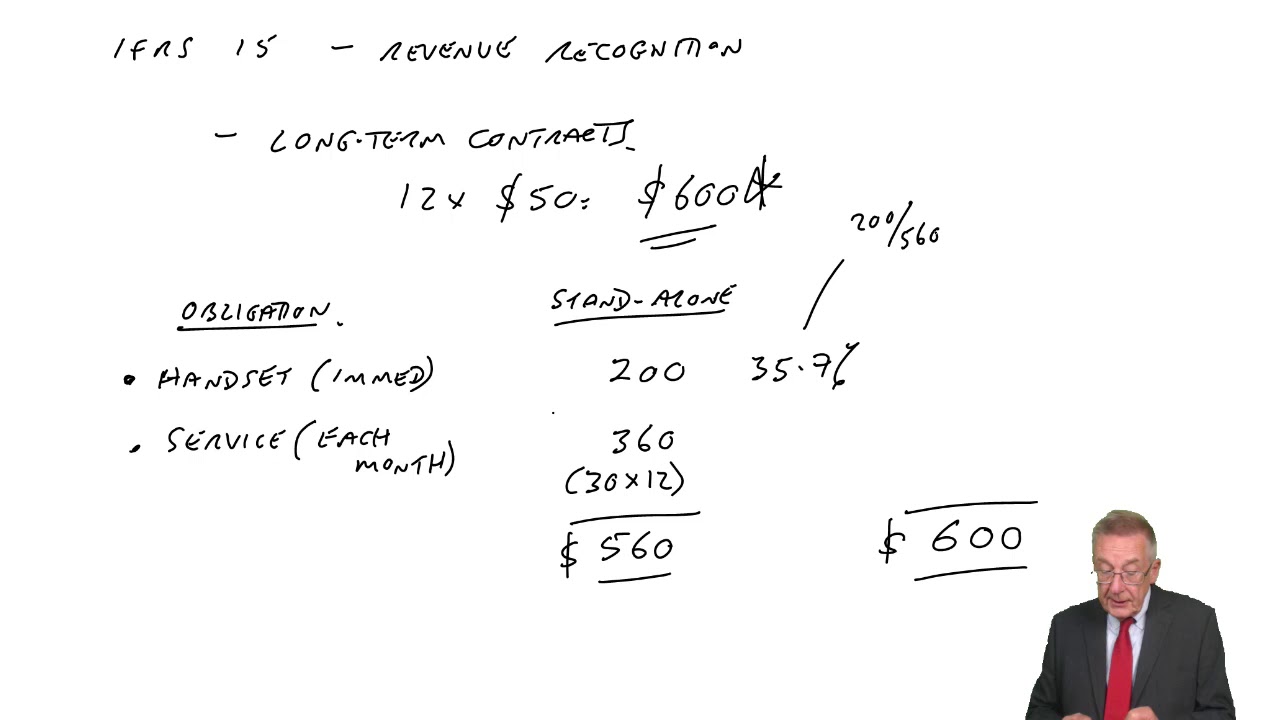 IFRS 15 - REVENUE RECOGNITION
- LONG-TERM CONTRACTS
12 x $50 = $600
200/560
OBLIGATION. STAND-ALONE
• HANDSET (IMMED) 200 35.7%
• SERVICE (EACH MONTH) 360
(30 x 12)
$ 560 $ 600